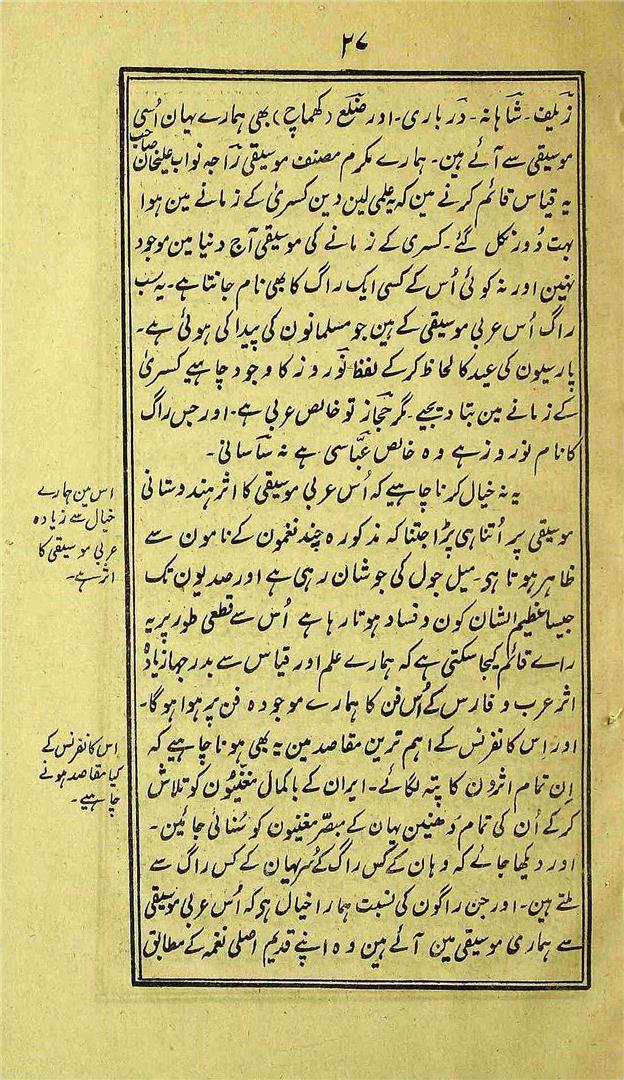 ۲۷
زیلف۔ شاہانہ۔ درباری۔ اور ضلع (کھماچ) بھی ہمارے یہان اُسی
موسیقی سے آئے ہین۔ ہمارے مکرم مصنف موسیقی راجہ نواب علیخان صاحب
یہ قیاس قائم کرنے مین کہ یہ علمی لین دین کسریٰ کے زمانے مین ہوا
بہت دُور نکل گئے۔ کسریٰ کے زمانے کی موسیقی آج دنیا مین موجود
نہین اور نہ کوئی اُس کے کسی ایک راگ کا بھی نام جانتا ہے۔ یہ سب
راگ اُس عربی موسیقی کے ہین جو مسلمانون کی پیدا کی ہوئی ہے۔
پارسیون کی عید کا لحاظ کرکے لفظ نوروز کا وجود چاہیے کسریٰ
کے زمانے مین بتا دیجیے۔ مگر حجاز تو خالص عربی ہے۔ اور جس راگ
کا نام نوروز ہے وہ خالص عبّاسی ہے نہ ساسانی۔
یہ نہ خیال کرنا چاہیے کہ اُس عربی موسیقی کا اثر ہندوستانی
موسیقی پر اُتنا ہی پڑا جتنا کہ مذکورہ چند نغمون کے نامون سے
ظاہر ہوتا ہی۔ میل جول کی جو شان رہی ہے اور صدیون تک
جیسا عظیم الشان کون و فساد ہوتا رہا ہے اُس سے قطعی طور پر یہ
راے قائم کیجا سکتی ہے کہ ہمارے علم اور قیاس سے بدرجہا زیادہ
اثر عرب و فارس کے اُس فن کا ہمارے موجودہ فن پر ہوا ہوگا۔
اور اِس کانفرنس کے اہم ترین مقاصد مین یہ بھی ہونا چاہیے کہ
اِن تمام اثرون کا پتہ لگائے۔ ایران کے باکمال مغنّیون کو تلاش
کرکے اُن کی تمام دھنین یہان کے مبصّر مغنیون کو سُنائی جائین۔
اور دیکھا جائے کہ وہان کے کس راگ کے سُر یہان کے کس راگ سے
ملتے ہین۔ اور جن راگون کی نسبت ہمارا خیال ہی کہ اُس عربی موسیقی
سے ہماری موسیقی مین آئے ہین وہ اپنے قدیم اصلی نغمہ کے مطابق
اس مین ہمارے
خیال سے زیادہ
عربی موسیقی کا
اثر ہے۔
اِس کانفرنس کے
کیا مقاصد ہونے
چاہیے۔